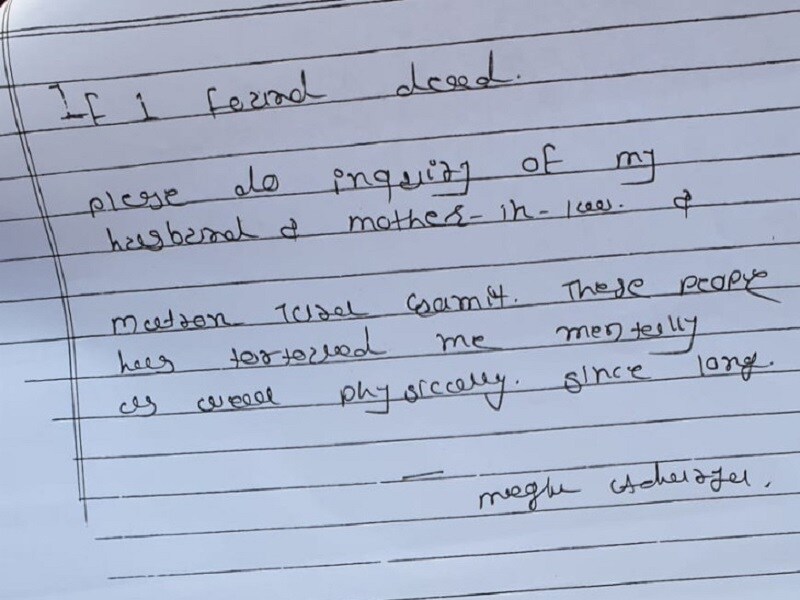 If I found dead.
please do inquiry of my
husband & mother-in-law. &
matron These people
has tortured me mentally
as well physically. since long.
— megha Acharya.